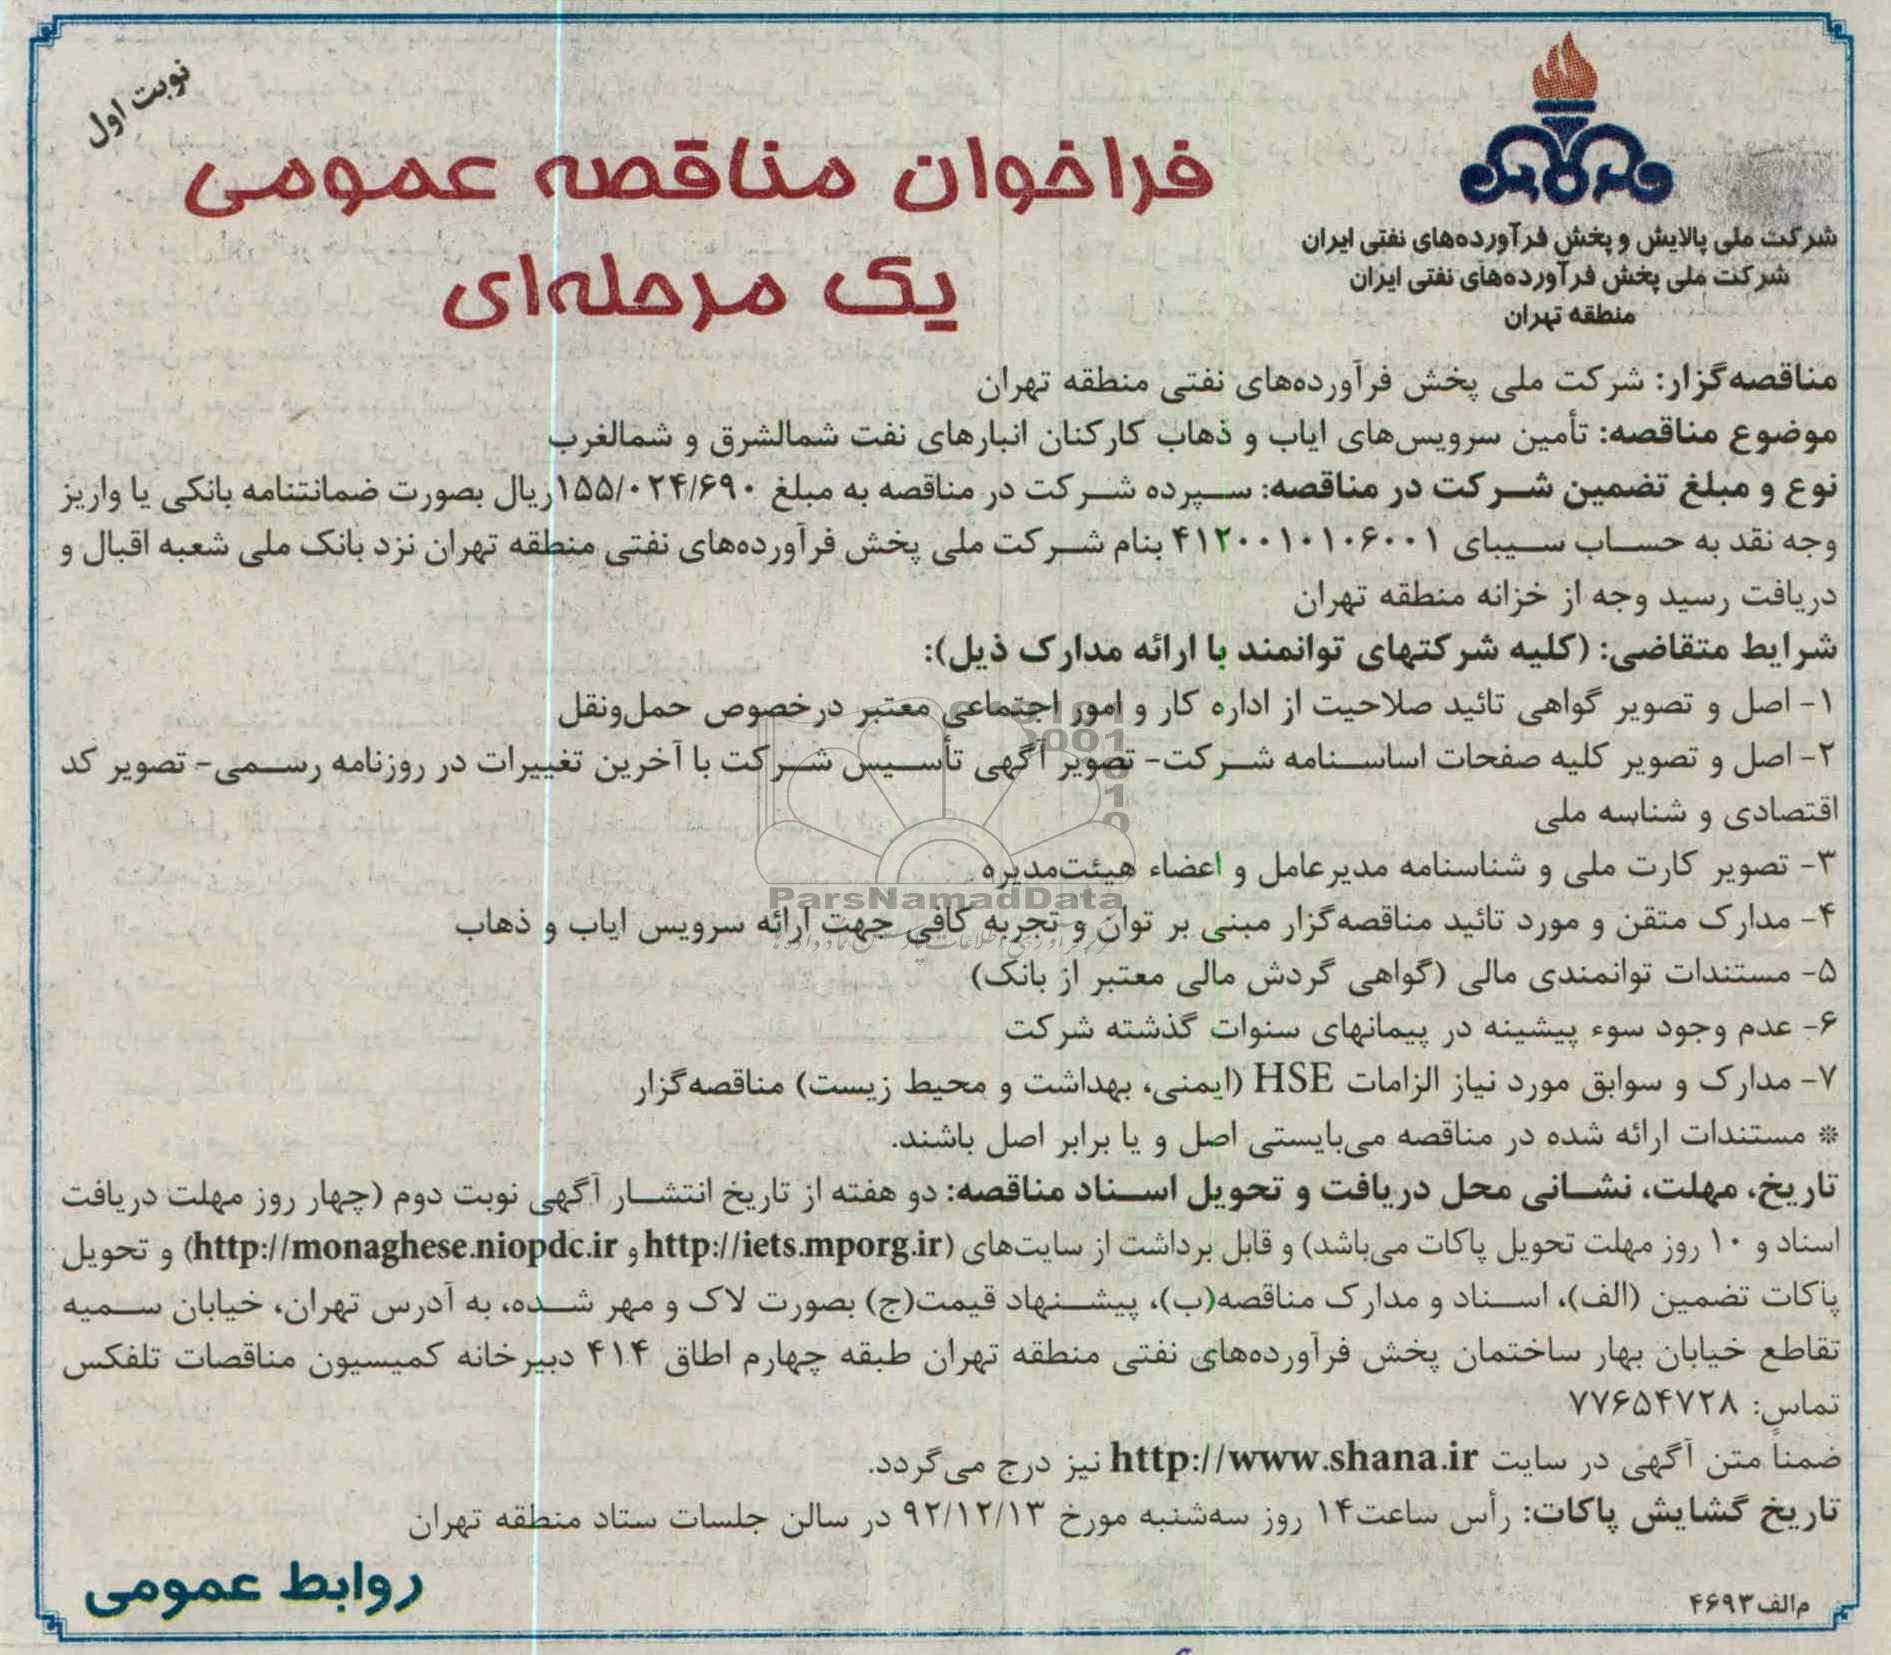 نوبت اول
شرکت ملی پالایش و پخش فرآورده‌های نفتی ایران
شرکت ملی پخش فرآورده‌های نفتی ایران
منطقه تهران
فراخوان مناقصه عمومی
یک مرحله‌ای
مناقصه‌گزار: شرکت ملی پخش فرآورده‌های نفتی منطقه تهران
موضوع مناقصه: تأمین سرویس‌های ایاب و ذهاب کارکنان انبارهای نفت شمالشرق و شمالغرب
نوع و مبلغ تضمین شرکت در مناقصه: سپرده شرکت در مناقصه به مبلغ ۱۵۵/۰۲۴/۶۹۰ریال بصورت ضمانتنامه بانکی یا واریز
وجه نقد به حساب سیبای ۴۱۲۰۰۱۰۱۰۶۰۰۱ بنام شرکت ملی پخش فرآورده‌های نفتی منطقه تهران نزد بانک ملی شعبه اقبال و
دریافت رسید وجه از خزانه منطقه تهران
شرایط متقاضی: (کلیه شرکتهای توانمند با ارائه مدارک ذیل):
۱- اصل و تصویر گواهی تائید صلاحیت از اداره کار و امور اجتماعی معتبر درخصوص حمل‌ونقل
۲- اصل و تصویر کلیه صفحات اساسنامه شرکت- تصویر آگهی تأسیس شرکت با آخرین تغییرات در روزنامه رسمی- تصویر کد
اقتصادی و شناسه ملی
۳- تصویر کارت ملی و شناسنامه مدیرعامل و اعضاء هیئت‌مدیره
ParsNamadData
۴- مدارک متقن و مورد تائید مناقصه‌گزار مبنی بر توان و تجربه کافی جهت ارائه سرویس ایاب و ذهاب
۵- مستندات توانمندی مالی (گواهی گردش مالی معتبر از بانک)
۶- عدم وجود سوء پیشینه در پیمانهای سنوات گذشته شرکت
۷- مدارک و سوابق مورد نیاز الزامات HSE (ایمنی، بهداشت و محیط زیست) مناقصه‌گزار
* مستندات ارائه شده در مناقصه می‌بایستی اصل و یا برابر اصل باشند.
تاریخ، مهلت، نشانی محل دریافت و تحویل اسناد مناقصه: دو هفته از تاریخ انتشار آگهی نوبت دوم (چهار روز مهلت دریافت
اسناد و ۱۰ روز مهلت تحویل پاکات می‌باشد) و قابل برداشت از سایت‌های (http://iets.mporg.ir و http://monaghese.niopdc.ir) و تحویل
پاکات تضمین (الف)، اسناد و مدارک مناقصه(ب)، پیشنهاد قیمت(ج) بصورت لاک و مهر شده، به آدرس تهران، خیابان سمیه
تقاطع خیابان بهار ساختمان پخش فرآورده‌های نفتی منطقه تهران طبقه چهارم اطاق ۴۱۴ دبیرخانه کمیسیون مناقصات تلفکس
تماس: ۷۷۶۵۴۷۲۸
ضمناً متن آگهی در سایت http://www.shana.ir نیز درج می‌گردد.
تاریخ گشایش پاکات: رأس ساعت۱۴ روز سه‌شنبه مورخ ۹۲/۱۲/۱۳ در سالن جلسات ستاد منطقه تهران
روابط عمومی
م‌الف۴۶۹۳